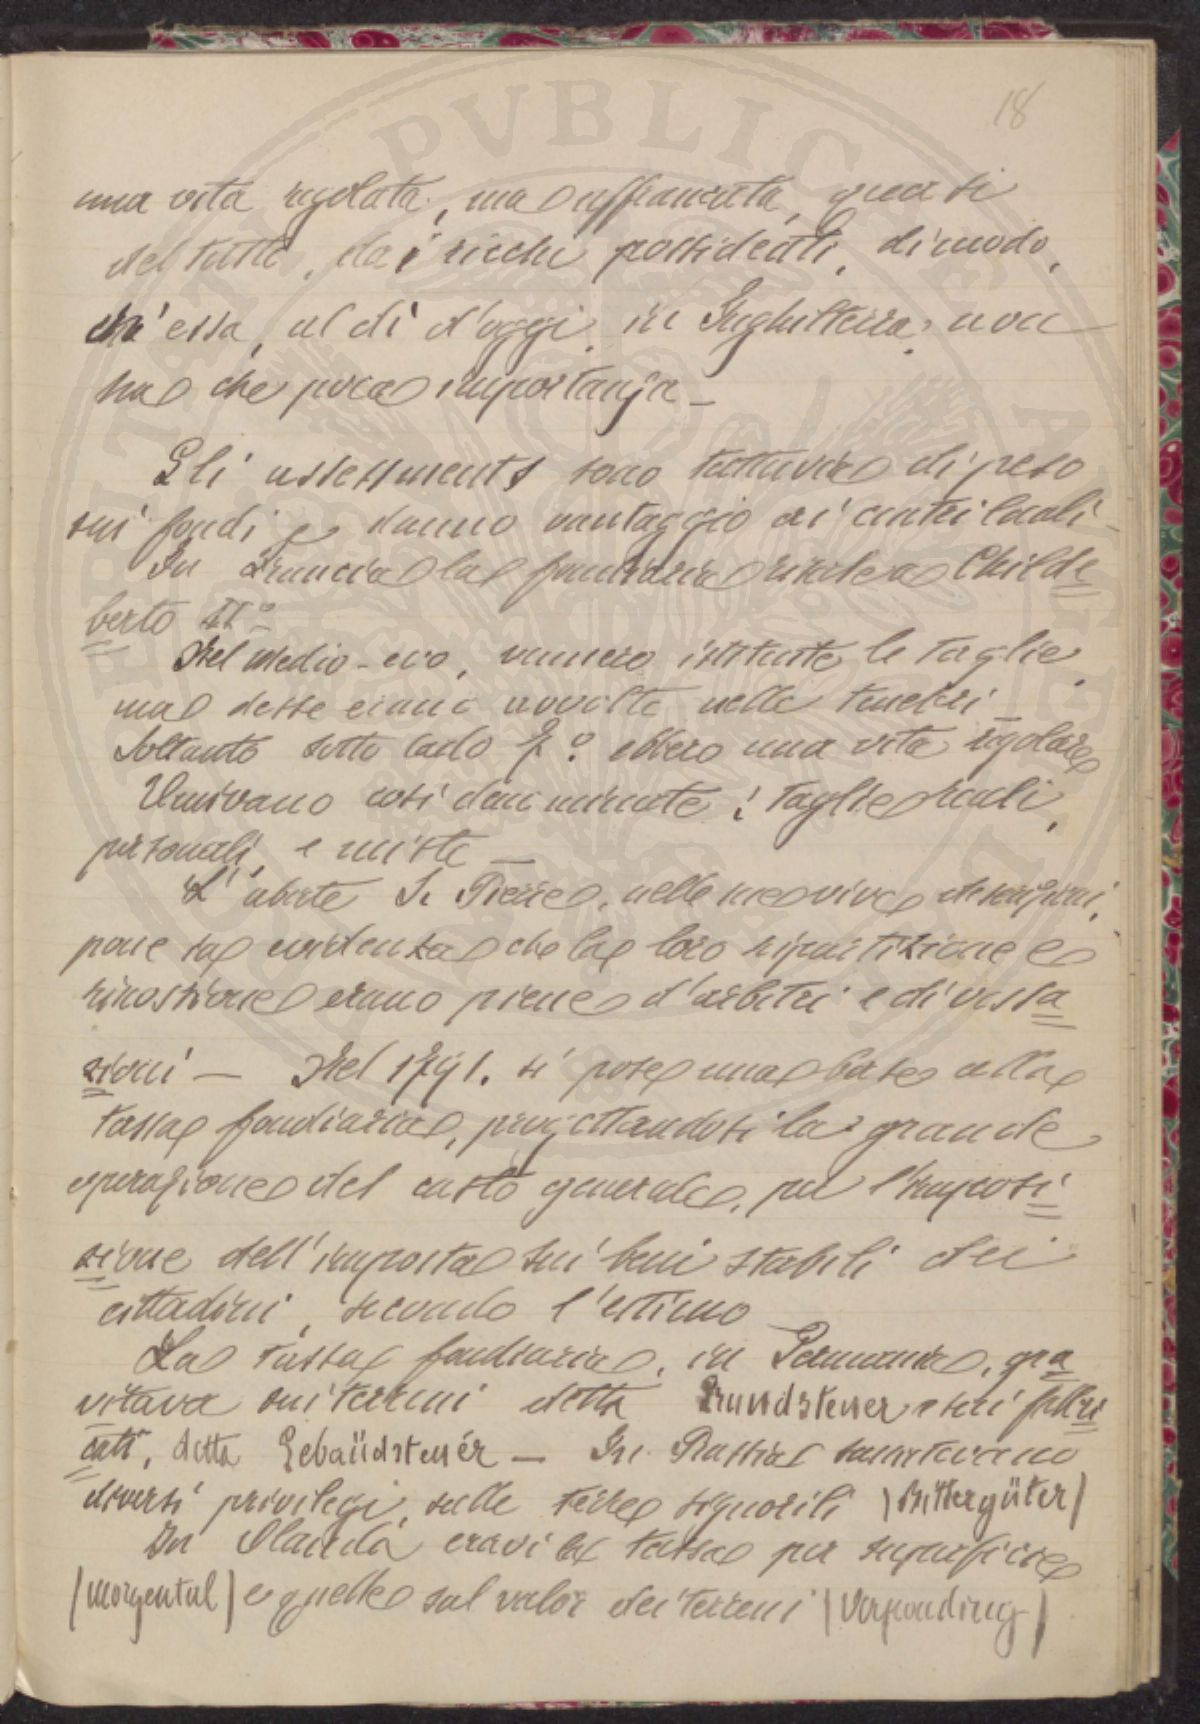 18
una vita regolata, ma affrancata, quasi
del tutto, dai ricchi possidenti, dimodo,
ch'essa, al dì d'oggi, in Inghilterra, non
ha che poca importanza –
Gli assessments sono tuttavia di peso
sui fondi e danno vantaggio ai centri locali –
In Francia la fondiaria risale a Childe
berto II° –
Nel Medio-evo, vennero istituite le taglie,
ma desse erano avvolte nelle tenebri –
Soltanto sotto Carlo 7° ebbero una vita regolare
Venivano così denominate: taglie reali,
personali, e miste –
L'abate St Pierre, nelle sue vive descrizioni,
pone in evidenza che la loro ripartizione e
riscossione erano piene d'arbitri e di vessa
zioni – Nel 1791. si pose una base alla
tassa fondiaria, progettandosi la grande
operazione del casto generale, per l'imposi
zione dell'imposta sui beni stabili dei
cittadini, secondo l'estimo
La tassa fondiaria, in Germania, gra
vitava sui terreni detta Grundsteuer e sui fabbri
cati, detta Gebaüdsteuér – In Prussia
diversi privilegi, sulle terre signorili (Rittergüter)
In Olanda eravi la tassa per superficie
(Morgental) e quelle sul valor dei terreni (Verponding)